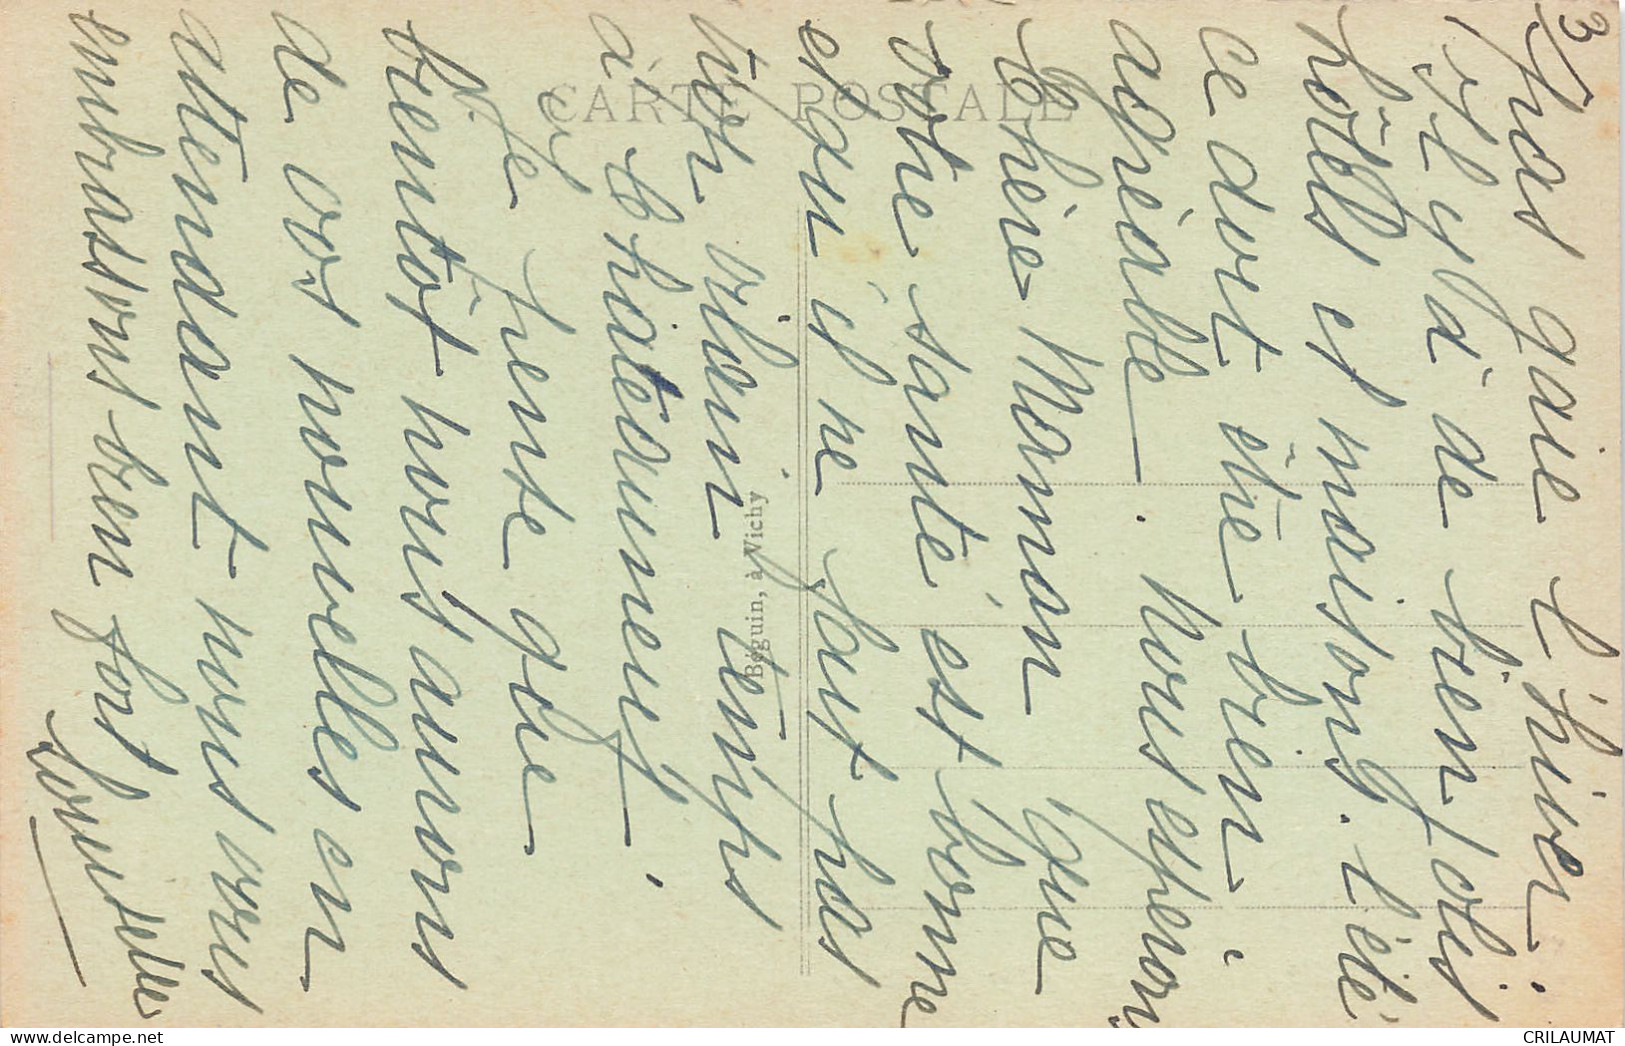 3
pas gaie l'hiver.
Il y a de bien jolis
hôtels et maisons. l'été
ce doit être bien
agréable. nous esperons
Chère Maman que
votre santé est bonne
et qu'il ne fait pas
trop vilain temps
à Chateauneuf.
Je pense que
bientot nous aurons
de vos nouvelles en
attendant nous vous
embrassons bien fort
CARTE POSTALE
Béguin, à Vichy
CRILAUMAT